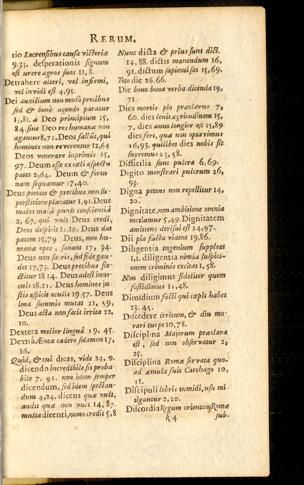 RERUM.
tio Lucrensibus causa victoriæ
9.31. desperationis signum
est urere agros suos 11,8.
Detrahere alteri, vel infirmi,
vel invidi est 4,95.
Dei auxilium non motò precibus
sed & benè agendo paratur
1,81. à Deo principium 15,
84 sine Deo res humanæ non
aguntur 8,72. Deos fallit, qui
homines non reverentur 12,64
Deos venerare inprimis 15,
97. Deum esse ex cœli aspectu
patet 2,64. Deum & fortu
nam sequamur 17,40.
Deus pietate & precibus, non su-
perstitione placatur 1,91. Deus
malos malâ punit conscientiâ
2, 67, qui vult Deus credi,
Deos despicit 1:26. Deus dat
pacem 15,79 Deus, non hu-
manæ opes, sanant 17, 34
Deus non sacris, sed fide gau-
det 17,73. Deus precibus fle-
ctitur 18 14. Deus adest inno-
cuis 18.21. Deus homines ju-
stis aspicit oculis 19.57. Deus
ima summis mutat 21, 59,
Deus acta non facit irrita 22,
10.
Dextera melior linguâ 19. 45.
Dextrâ Æneæ cadere solamen 17,
16.
Quid, & cui dicas, vide 23, 9.
dicendo incredibile sit proba-
bile 7, 92. non idem semper
dicendum, sed idem spectan-
dum 4,24. dicens quæ vult,
audit quæ non vult 14, 87.
multa dicenti, nemo credit 5,8
Nunc dicta & prius sunt dict.
14, 88. dictis manendum 16,
91. dictum sapienti sat 15, 69.
Tot die 26.66.
Die bono bona verba dicenda 19,
71.
Dies mortis pio præclarus 7,
60. dies lenit ægritudinem 15,
7, dies annos longior est 15,89
dies fert, quæ non optavimus
16,93. quilibet dies nobis sit
supremus 23,58.
Difficilia sunt pulcra 6,69.
Digito monstrari pulcrum 26,
93.
Digna petens non repellitur 14,
20.
Dignitate, non ambitione omnia
metiamur 5,49. Dignitatem
amittens derisui est 24,97.
Dii pia facta vident 19.86.
Diligentia ingenium suppleat
1,1. diligentia nimia suspici-
onem criminis excitat 1, 58.
Non diligimus fideliter quem
fastidimus 11,48.
Dimidium facti qui cœpit habet
23. 45.
Discedere irritum, & diu mo-
rari turpe 10,78.
Disciplina Majorum præclara
est, sed non observatur 2,
25.
Disciplina Romæ servata quo-
ad æmula fuit Carthago 10,
11.
Discipuli libris timidi, usu mi-
tigantur 2, 20.
Discordia Regum orientem Romæ
R 4
sub-